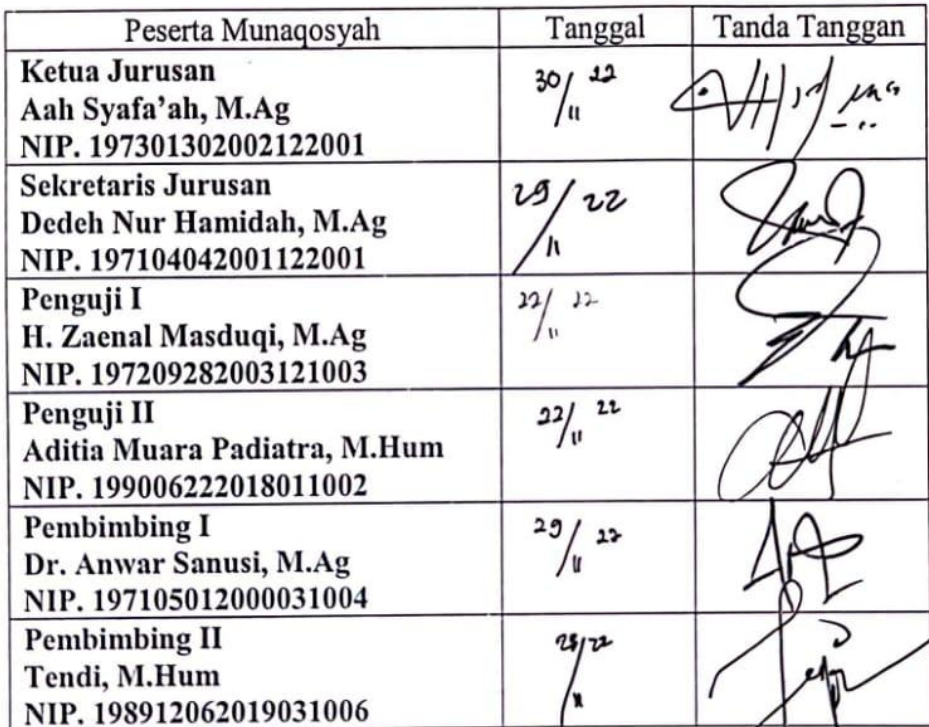 Peserta Munaqosyah Tanggal Tanda Tanggan
Ketua Jurusan
Aah Syafa'ah, M.Ag 30/11 22
NIP. 197301302002122001
Sekretaris Jurusan
Dedeh Nur Hamidah, M.Ag 29/11 22
NIP. 197104042001122001
Penguji I
H. Zaenal Masduqi, M.Ag 22/11 22
NIP. 197209282003121003
Penguji II
Aditia Muara Padiatra, M.Hum 22/11 22
NIP. 199006222018011002
Pembimbing I
Dr. Anwar Sanusi, M.Ag 29/11 22
NIP. 197105012000031004
Pembimbing II
Tendi, M.Hum
NIP. 198912062019031006